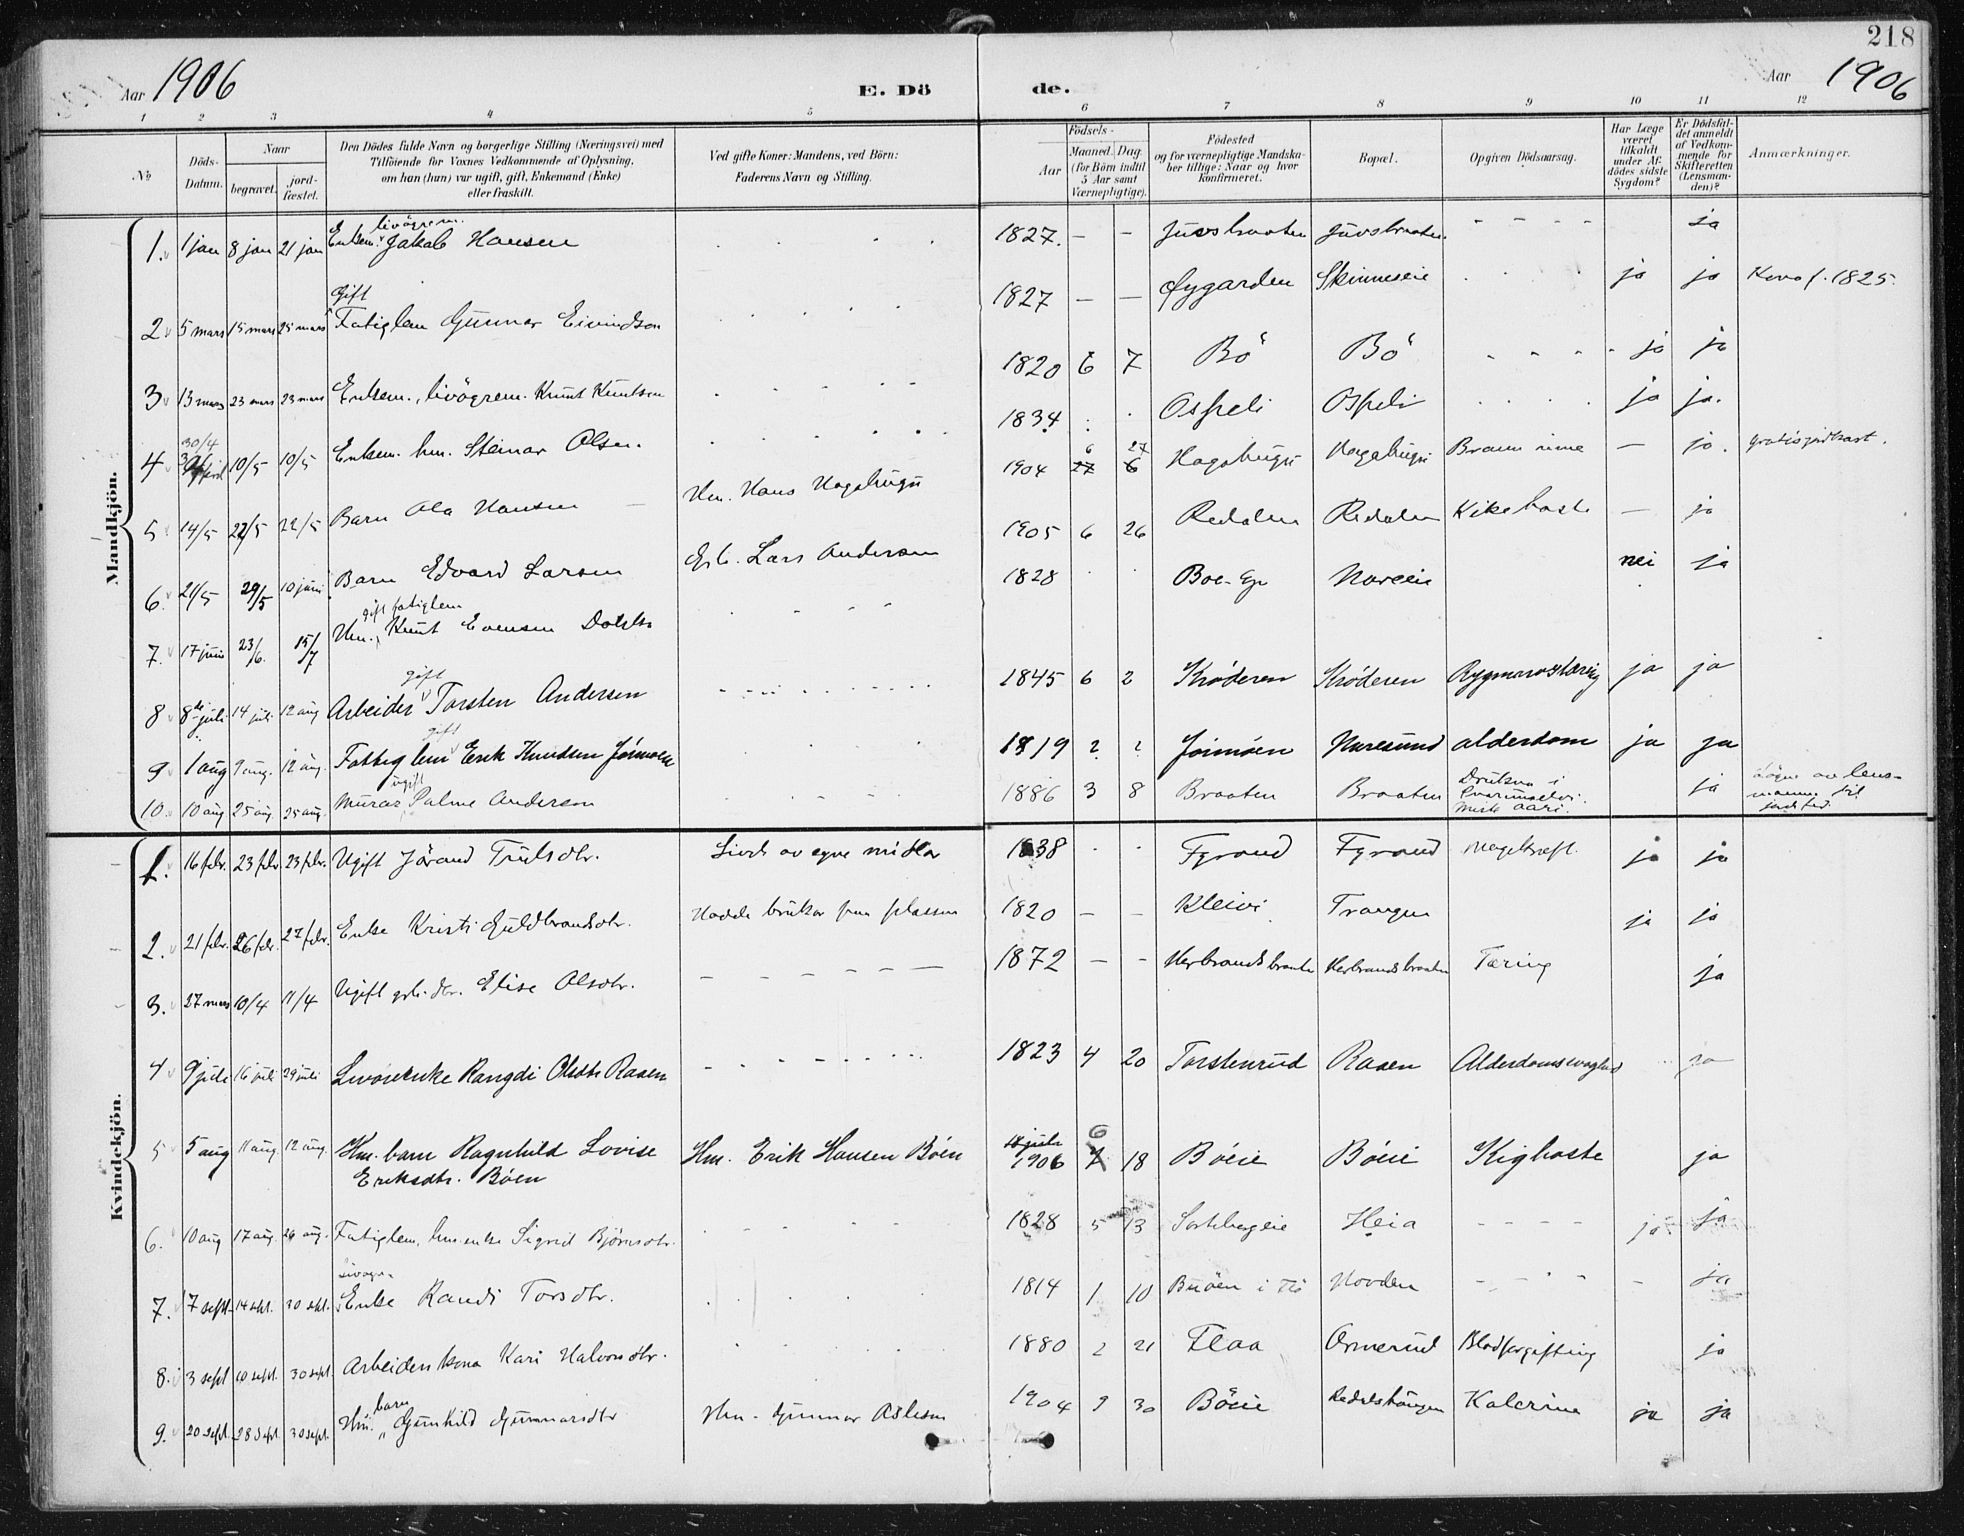 218
Aar 1906
E. Dö de.
Aar 1906
1 2 3 4 5 6 7 8 9 10 11 12
No
Döds-Datum.
Naar
begravet.
jord-fæstet.
Den Dödes fulde Navn og borgerlige Stilling (Næringsvei) med
Tilföiende for Voxnes Vedkommende af Oplysning,
om han (hun) var ugift, gift, Enkemand (Enke)
eller fraskilt.
Ved gifte Koner: Mandens, ved Börn:
Faderens Navn og Stilling.
Födsels-
Aar
Maaned. Dag.
(for Börn indtil
5 Aar samt
Værnepligtige).
Födested
og for værnepligtige Mandska-
ber tillige: Naar og hvor
konfirmeret.
Bopæl.
Opgiven Dödsaarsag.
Har Læge
været
tilkaldt
under Af-
dödes sidste
Sygdom?
Er Dödsfal-
det anmeldt
af Vedkom-
mende for
Skifteretten
(Lensman-
den)?
Anmærkninger.
Mandkjön.
1. 1 jan 8 jan 21 jan Enkem. livögrem. Jakob Hansen 1827. – – Juvsbraaten Juvsbraaten - - - - ja
2 5 mars 15 mars 25 mars Gift Fatiglem Gunnar Eivindson 1827 – – Øygarden Skinneseie ja ja Kona f. 1825.
3 13 mars 23 mars 23 mars Enkem., livögrem. Knut Knutsen 1820 6 7 Bö Bö - - - - ja ja
4 30/4 10/5 10/5 Enkem. hm. Steinar Olsen. 1834 Ospeli Ospeli ja ja.
5 14/5 22/5 22/5 Barn Ola Hansen Hm. Hans Hagahugu 1904 6 27 Hagahugu Hagahugu – ja.
6. 21/5 29/5 10 juni Barn Edvard Larsen Grb. Lars Andersen 1905 6 26 Redalen Redalen Kikehoste – ja
7. 17 juni 23/6. 15/7 Hm. gift fatiglem Knut Evensen 1828 nei ja
8 8de juli 14 juli 12 aug Arbeider gift Torsten Andersen 1845 6 2 Krøderen Krøderen ja ja
9 1 aug 9 aug. 12 aug. Fattiglem gift Erik Knudsen Jørimoen 1819 ? ? Jørimoen Noresund alderdom ja ja
10. 10 aug 25 aug. 25 aug. Murar ugift Palme Anderson 1886 3 8 Braaten Braaten ja
Kvindekjön.
1. 16 febr. 23 febr 23 febr. Ugift Jörand Trulsdtr. Livde av egne midlar 1838 Fyrand Fyrand ja ja
2. 21 febr. 26 febr. 27 febr. Enke Kristi Guldbrandsdtr. Hadde brukar paa plassen 1820 – – Kleivi Trangen ja ja
3. 27 mars 10/4 11/4 Ugift grb. dtr. Elise Olsdtr. 1872 – – Herbrandsbraaten Herbrandsbraaten Tæring ja
4 9 juli 16 juli 29 juli Livöreenke Rangdi Olsdtr Raaen 1823 4 20 Torstenrud Raaen ja
5 5 aug 11 aug. 12 aug. Hm. barn Ragnhild Lovise Hm. Erik Hansen Böen 1906 6 18 Böeie Böeie Kighoste ja
Eriksdtr. Böen
6. 10 aug 17 aug. 26 aug. Fatiglem, hm.enke Sigrid Björnsdtr. 1828 5 13 Heia - - - - ja ja
7. 7 sept. 14 sept. 30 spt. Enke Randi Torsdtr. 1814 1 10 Hovden - - - - – ja
8. 3 sept 10 sept. 30 sept. Arbeidar kona Kari Halvorsdtr. 1880 2 21 Flaa Ormerud Blodforgifting ja
9. 20 sept. 28 sept. 30 sept. Hm. barn Gunhild Gunnarsdtr Hm. Gunnar Aslesen 1904 9 30 Böeie Kolerine ja ja